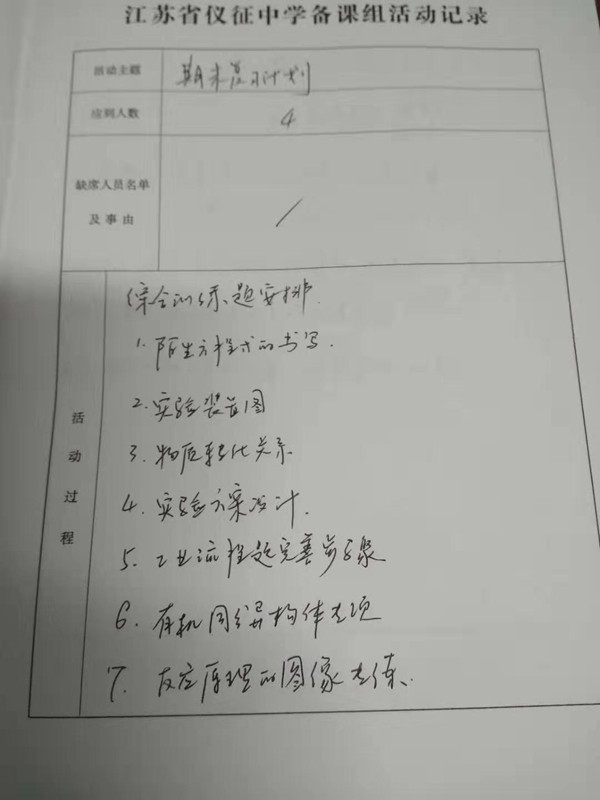 江苏省仪征中学备课组活动记录
活动主题 期末复习计划
应到人数 4
缺席人员名单
及事由 /
活动过程
综合训练题安排.
1. 陌生方程式的书写.
2. 实验装置图
3. 物质转化关系
4. 实验方案设计.
5. 工业流程题完善步骤
6. 有机同分异构体专项
7. 反应原理的图像专练.